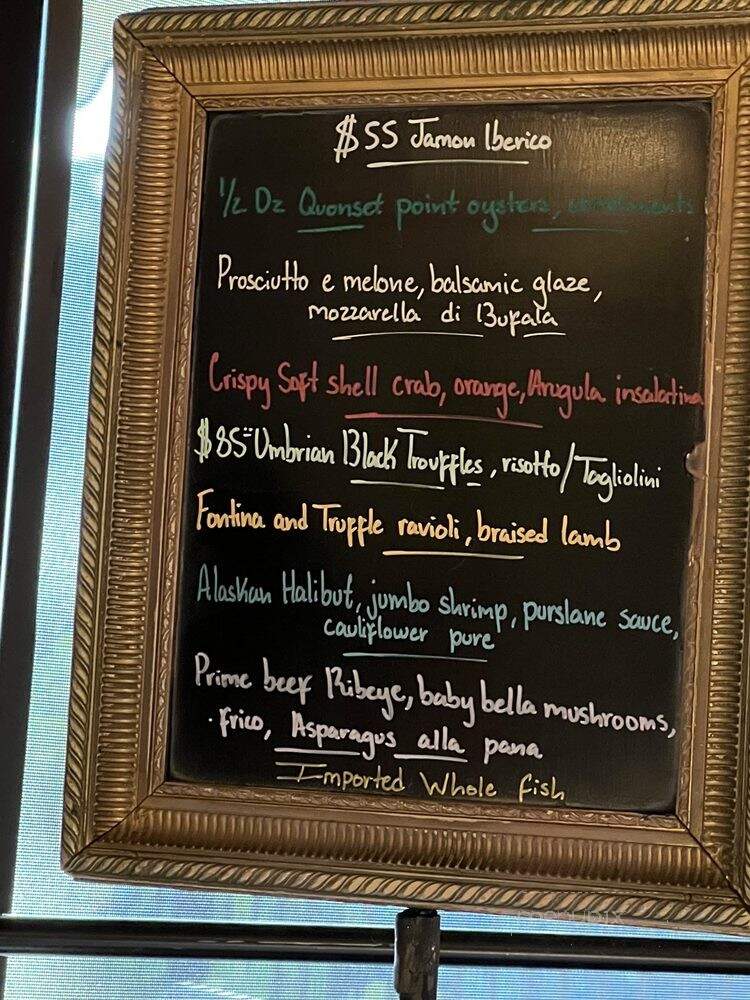 $55 Jamon Iberico
1/2 Dz Quonset point oysters,
Prosciutto e melone, balsamic glaze,
mozzarella di Bufala
Crispy Soft shell crab, orange, Arugula insalatina
$85 Umbrian Black Trouffles, risotto/Tagliolini
Fontina and Truffle ravioli, braised lamb
Alaskan Halibut, jumbo shrimp, purslane sauce,
cauliflower pure
Prime beef Ribeye, baby bella mushrooms,
frico, Asparagus alla pana
Imported Whole fish